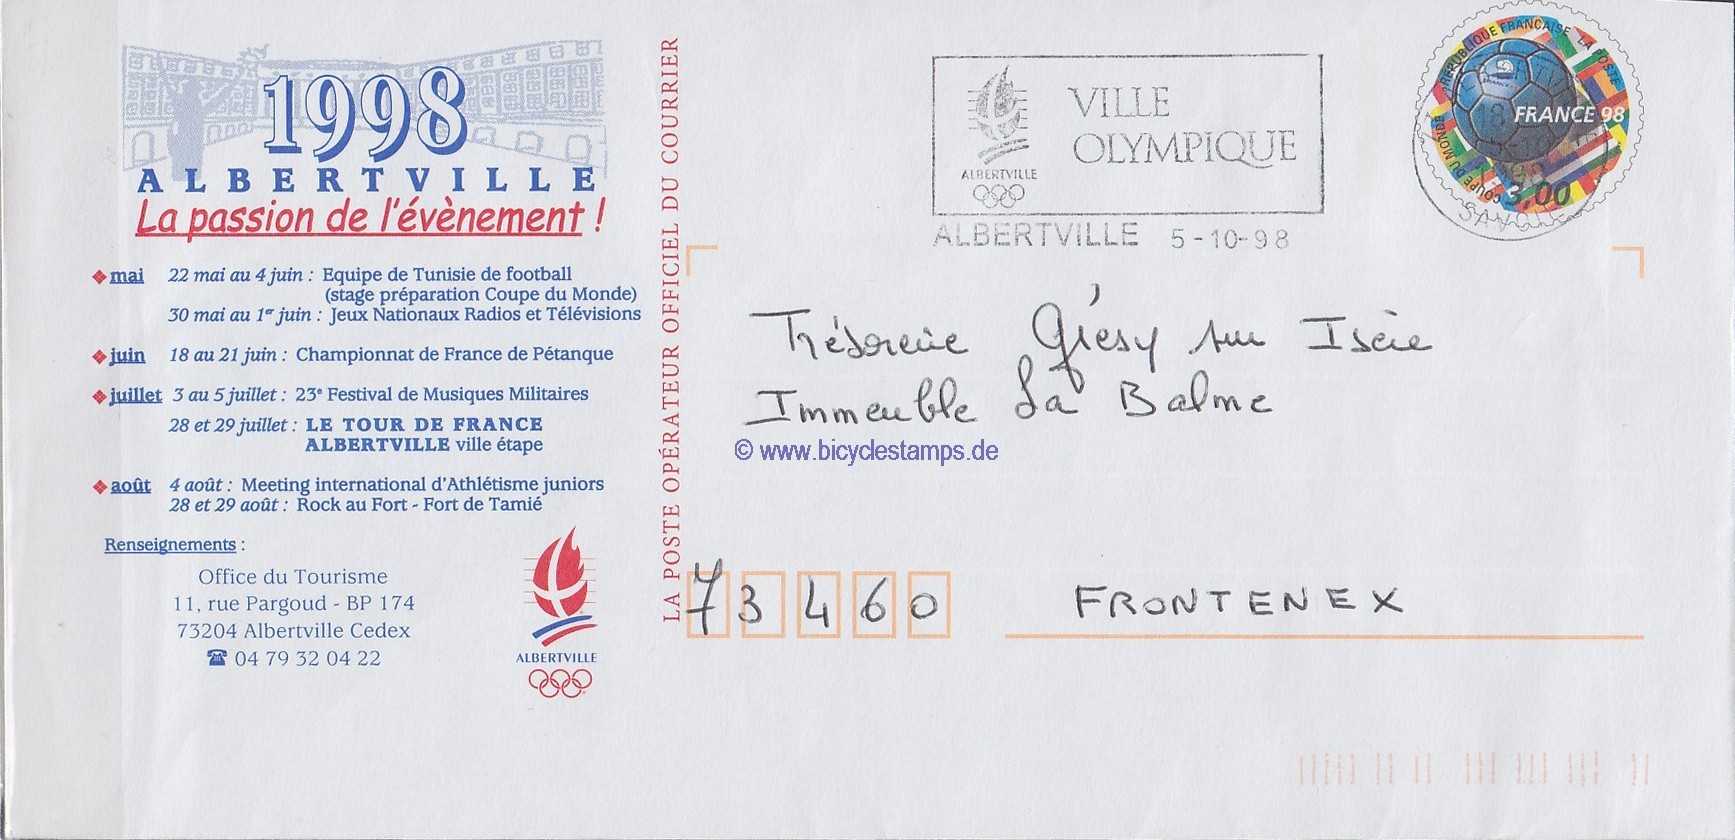 1998
ALBERTVILLE
La passion de l'évènement !
mai 22 mai au 4 juin : Equipe de Tunisie de football
(stage préparation Coupe du Monde)
30 mai au 1er juin : Jeux Nationaux Radios et Télévisions
juin 18 au 21 juin : Championnat de France de Pétanque
juillet 3 au 5 juillet : 23e Festival de Musiques Militaires
28 et 29 juillet : LE TOUR DE FRANCE
ALBERTVILLE ville étape
août 4 août : Meeting international d'Athlétisme juniors
28 et 29 août : Rock au Fort - Fort de Tamié
Renseignements :
Office du Tourisme
11, rue Pargoud - BP 174
73204 Albertville Cedex
☎ 04 79 32 04 22
ALBERTVILLE
LA POSTE OPÉRATEUR OFFICIEL DU COURRIER
VILLE
OLYMPIQUE
ALBERTVILLE
ALBERTVILLE 5-10-98
REPUBLIQUE FRANÇAISE LA POSTE
FRANCE 98
COUPE DU MONDE
3,00
SAVOIE
Trésorerie Grésy sur Isère
Immeuble La Balme
© www.bicyclestamps.de
73460 FRONTENEX